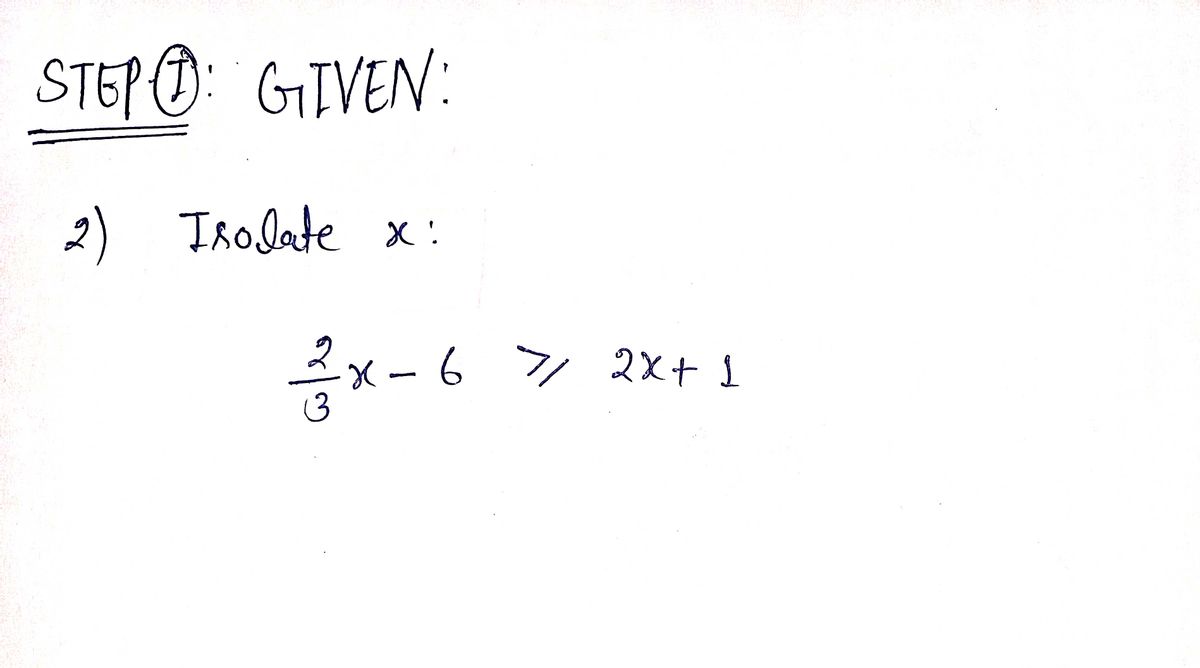 STEP Ⓘ: GIVEN:
2) Isolate x:
2/3 x - 6 ⩾ 2x + 1